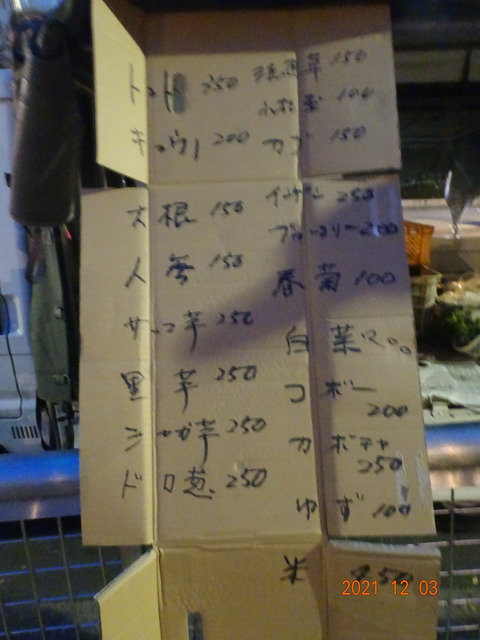 トマト 350
キュウリ 200
大根 150
人参 150
サツマ芋 250
里芋 250
ジャガ芋 250
ドロ葱 250
150
小松菜 100
カブ 150
インゲン 250
ブロッコリー 200
春菊 100
白菜 200
ゴボー
200
カボチャ
250
ゆず 100
米
2021 12 03